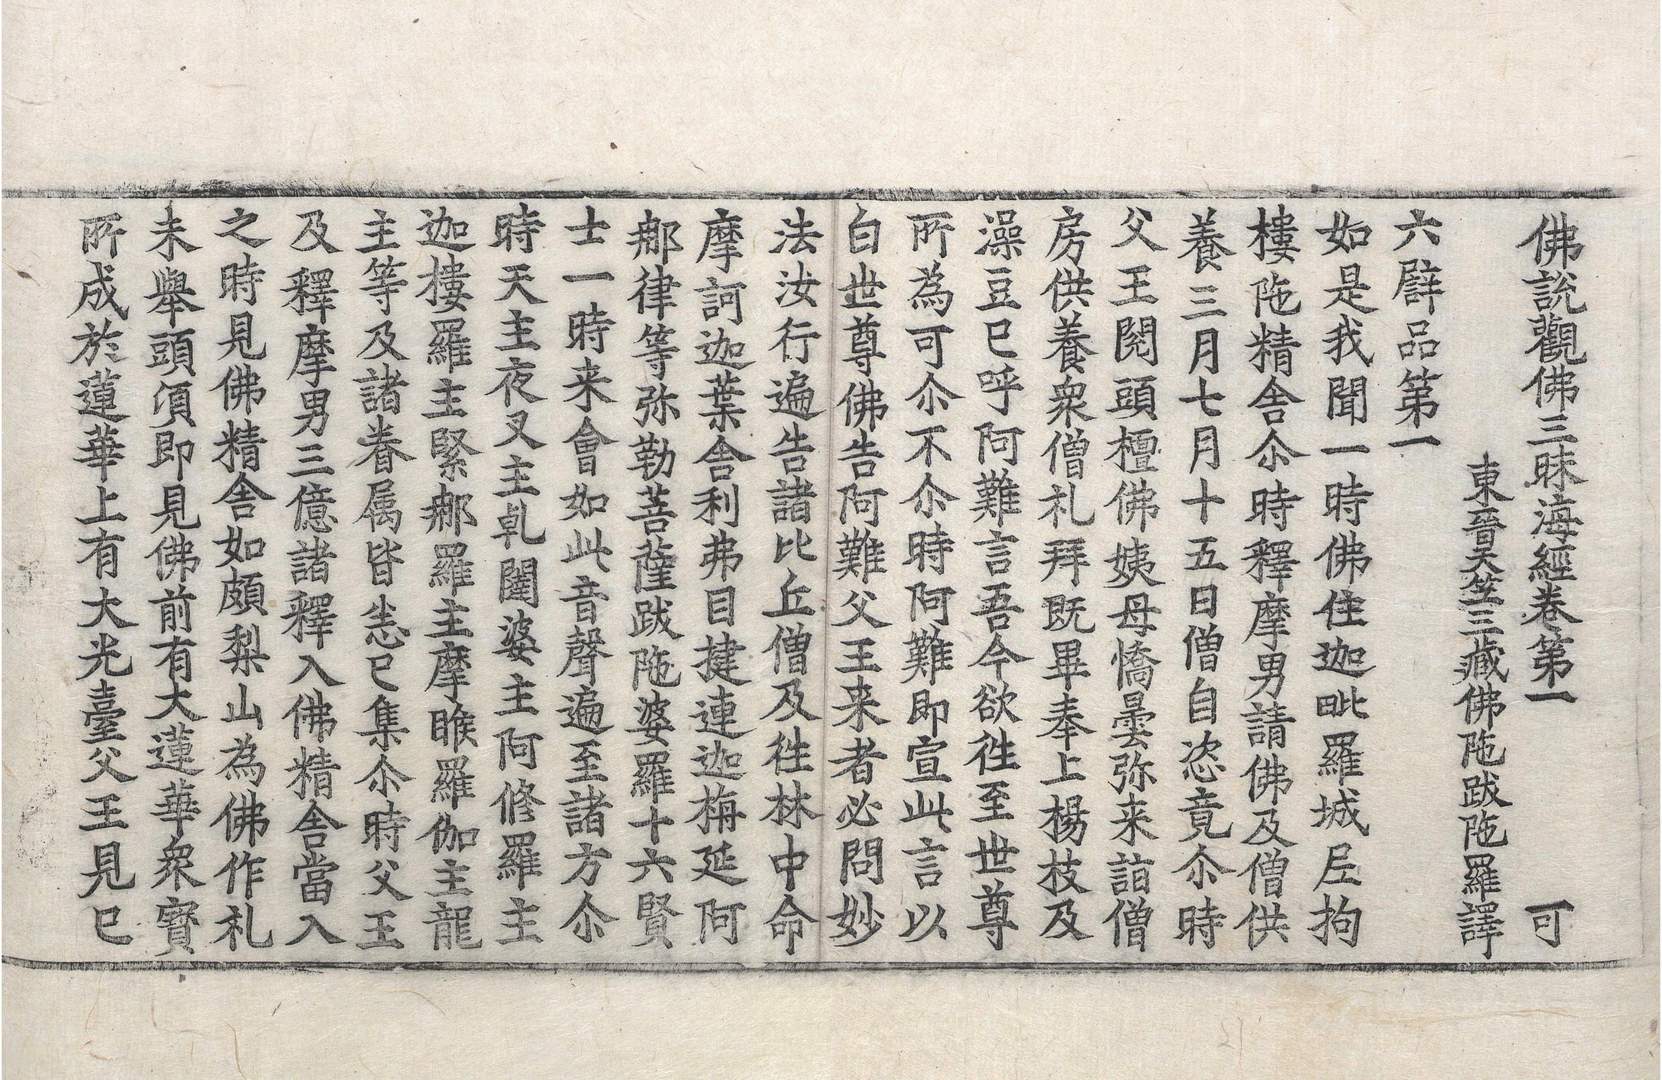 佛說觀佛三昧海經卷第一　可
東晉天竺三藏佛陁跋陁羅譯
六辟品第一
如是我聞一時佛住迦毗羅城尼拘
樓陁精舍尒時釋摩男請佛及僧供
養三月七月十五日僧自恣竟尒時
父王閱頭檀佛姨母憍曇弥来詣僧
房供養衆僧礼拜既畢奉上楊枝及
澡豆已呼阿難言吾今欲徃至世尊
所為可尒不尒時阿難即宣此言以
白世尊佛告阿難父王来者必問妙
法汝行遍告諸比丘僧及徃林中命
摩訶迦葉舍利弗目揵連迦栴延阿
那律等弥勒菩薩跋陁婆羅十六賢
士一時来會如此音聲遍至諸方尒
時天主夜叉主乹闥婆主阿修羅主
迦樓羅主緊那羅主摩睺羅伽主龍
主等及諸眷属皆悉已集尒時父王
及釋摩男三億諸釋入佛精舍當入
之時見佛精舍如頗梨山為佛作礼
未舉頭頃即見佛前有大蓮華衆寳
所成於蓮華上有大光臺父王見已